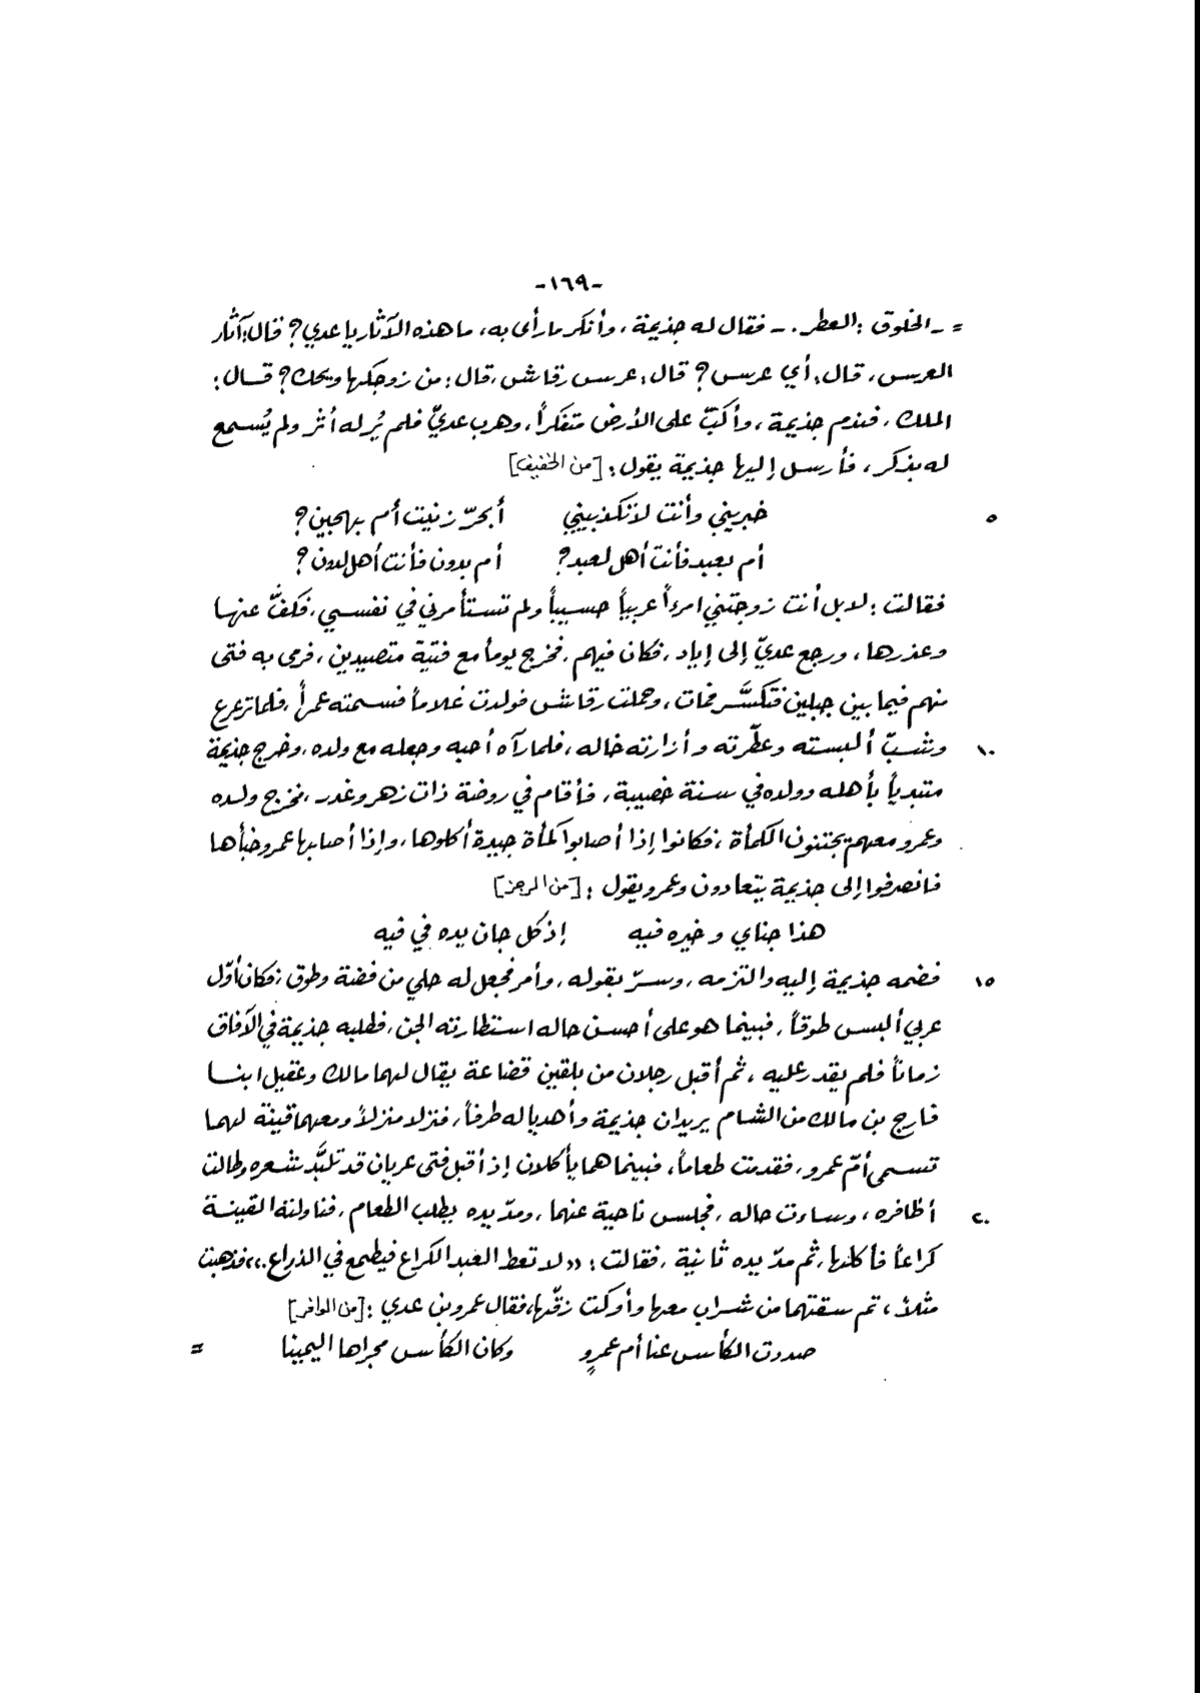 -١٦٩-
= - الخلوق : العطر . - فقال له جذيمة ، وأنكر ما رأى به ، ما هذه الآثار يا عدي ؟ قال : آثار
العرس ، قال : أي عرس ؟ قال : عرس رقاش ، قال : من زوجكها ويحك ؟ قال :
الملك ، فندم جذيمة ، وأكبّ على الأرض متفكراً ، وهرب عديّ فلم يُر له أثر ولم يُسمع
له بذكر ، فأرسل إليها جذيمة يقول : [من الخفيف]
٥ خبريني وأنت لا تكذبيني أبحرّ زنيت أم بهجين ؟
أم بعبد فأنت أهل لعبد ؟ أم بدون فأنت أهل لدون ؟
فقالت : لا بل أنت زوجتني امرءاً عربياً حسيباً ولم تستأمرني في نفسي ، فكفَّ عنها
وعذرها ، ورجع عديّ إلى إياد ، فكان فيهم ، فخرج يوماً مع فتية متصيدين ، فرمى به فتى
منهم فيما بين جبلين فتكسَّر فمات ، وحملت رقاش فولدت غلاماً فسمته عمراً ، فلما ترعرع
١٠ وشبّ ألبسته وعطّرته وأزارته خاله ، فلما رآه أحبه وجعله مع ولده ، وخرج جذيمة
متبدياً بأهله وولده في سنة خصيبة ، فأقام في روضة ذات زهر وغدر ، فخرج ولده
وعمرو معهم يجتنون الكمأة ، فكانوا إذا أصابوا كمأة جيدة أكلوها ، وإذا أصابها عمرو خبأها
فانصرفوا إلى جذيمة يتعادون وعمرو يقول : [من الرجز]
هذا جناي وخيره فيه إذ كل جان يده في فيه
١٥ فضمه جذيمة إليه والتزمه ، وسرّ بقوله ، وأمر فجعل له حلي من فضة وطوق ، فكان أوّل
عربي ألبس طوقاً ، فبينما هو على أحسن حاله استطارته الجن ، فطلبه جذيمة في الآفاق
زماناً فلم يقدر عليه ، ثم أقبل رجلان من بلقين قضاعة يقال لهما مالك وعقيل ابنا
فارج بن مالك من الشام يريدان جذيمة وأهديا له طرفاً ، فنزلا منزلاً ومعهما قينة لهما
تسمى أمّ عمرو ، فقدمت طعاماً ، فبينما هما يأكلان إذ أقبل فتى عريان قد تلبَّد شعره وطالت
٢٠ أظافره ، وساءت حاله ، فجلس ناحية عنهما ، ومدّ يده يطلب الطعام ، فناولته القينة
كراعاً فأكلها ، ثم مدّ يده ثانية ، فقالت : «لا تعط العبد الكراع فيطمع في الذراع .» ، فذهبت
مثلاً ، ثم سقتهما من شراب معها وأوكت زقّها ، فقال عمرو بن عدي : [من الوافر]
صددت الكأس عنا أم عمرٍو وكان الكأس مجراها اليمينا =